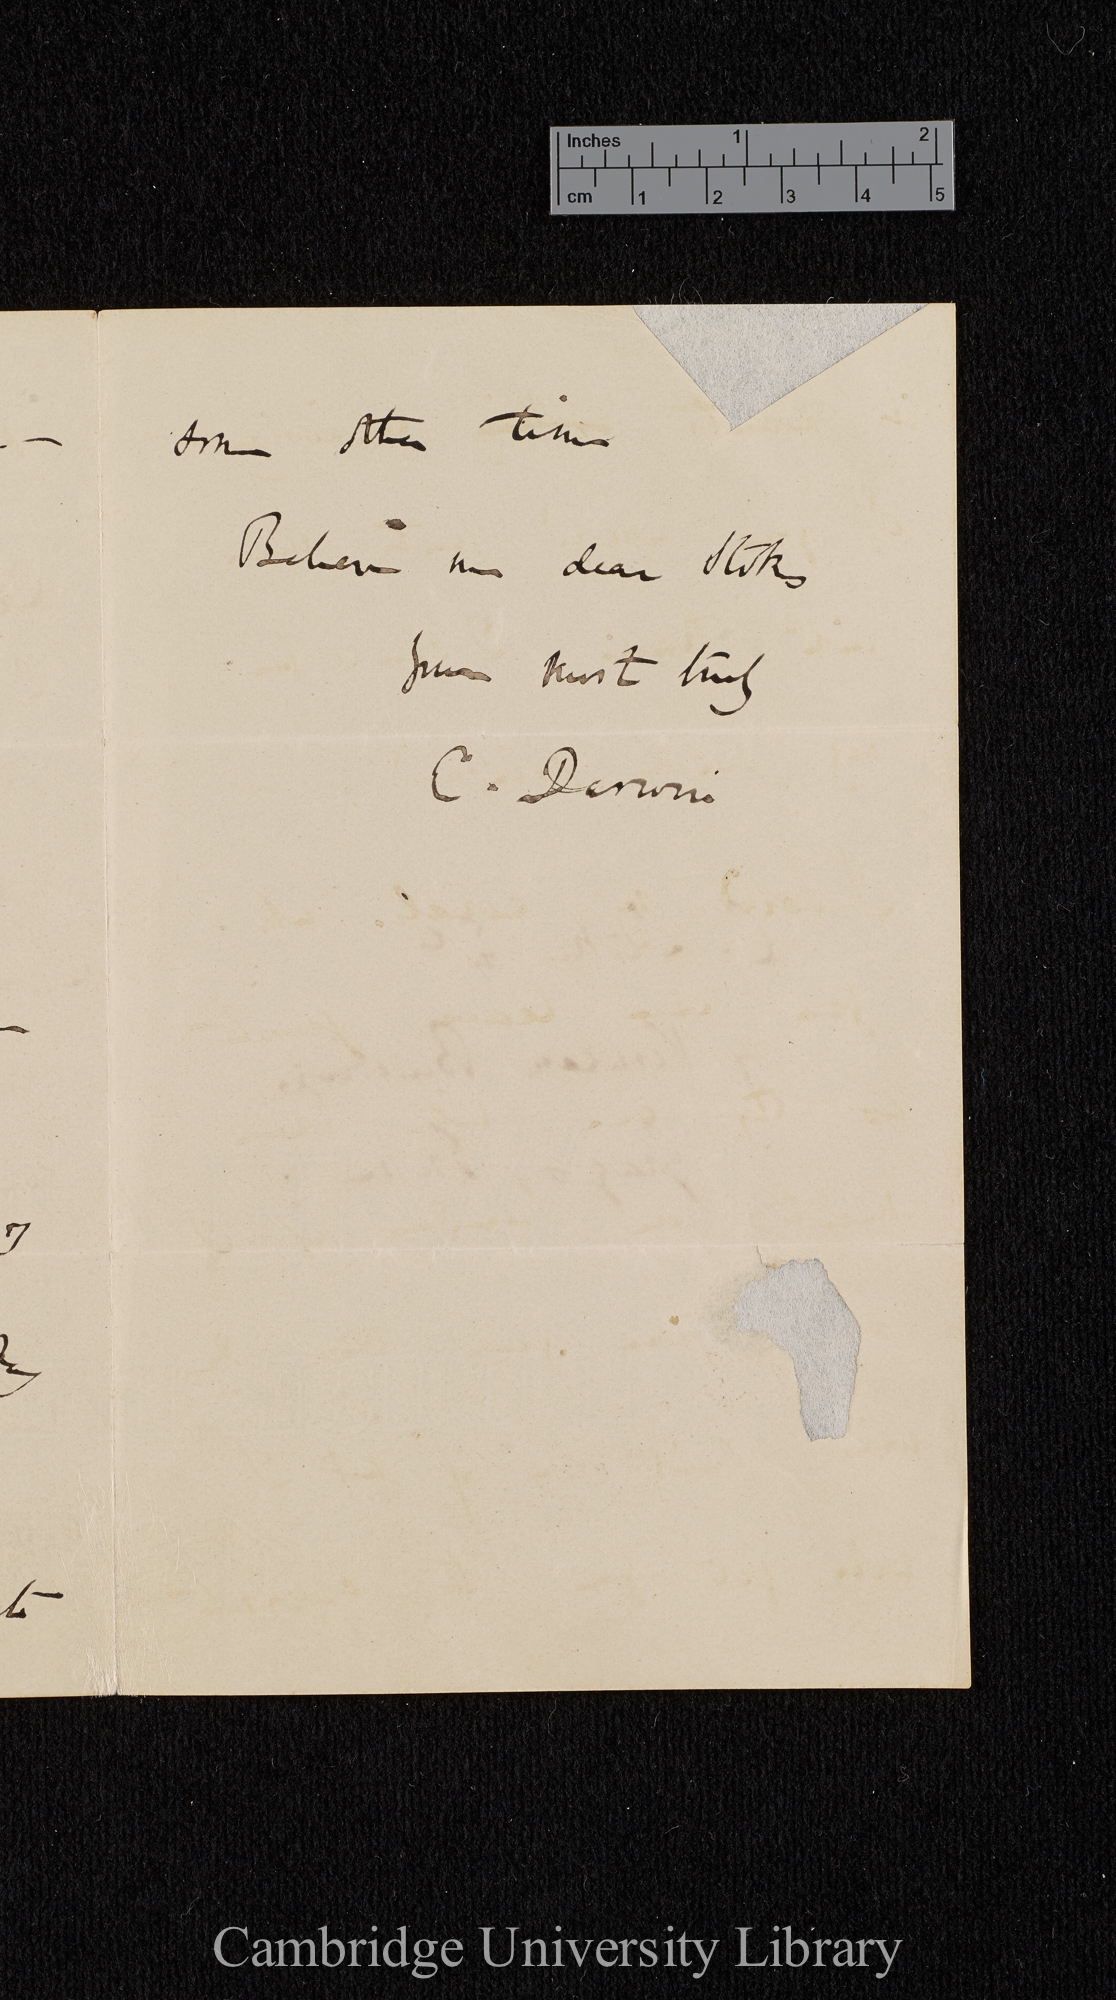 Inches 1 2
cm 1 2 3 4 5
some other time
Believe me dear Stokes
Yours most truly
C. Darwin
Cambridge University Library